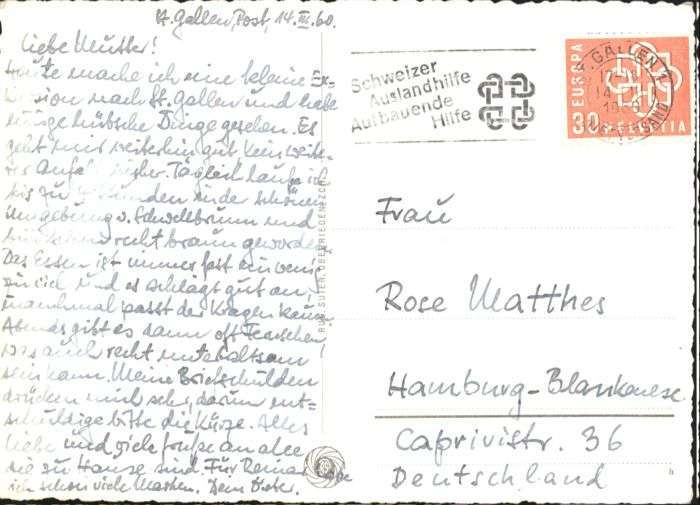 St. Gallen, Post, 14. III. 60.
Liebe Mutter!
Heute mache ich eine kleine Ex=
kursion nach St. Gallen und habe
einige hübsche Dinge gesehen. Es
geht mir weiterhin gut, kein weite=
rer Anfall bisher. Täglich laufe ich
bis zu 4 Stunden in der schönen
Umgebung v. Schwellbrunn und
bin schon recht braun geworden.
Das Essen ist immer fast ein wenig
zu viel und es schlägt gut an,
manchmal passt der Kragen kaum.
Abends gibt es dann oft Fernsehen
was auch recht unterhaltsam
sein kann. Meine Briefschulden
drücken mich sehr, darum ent=
schuldige bitte die Kürze. Alles
Liebe und viele Grüße an alle
die zu Hause sind. Für Reinar habe
ich schon viele Marken. Dein Dieter.
RUD. SUTER, OBERRIEDEN-ZCH.
Schweizer
Auslandhilfe
Aufbauende
Hilfe
ST. GALLEN 1
14
BRIEFVERSAND
EUROPA
30
HELVETIA
Frau
Rose Matthes
Hamburg-Blankenese
Caprivistr. 36
Deutschland